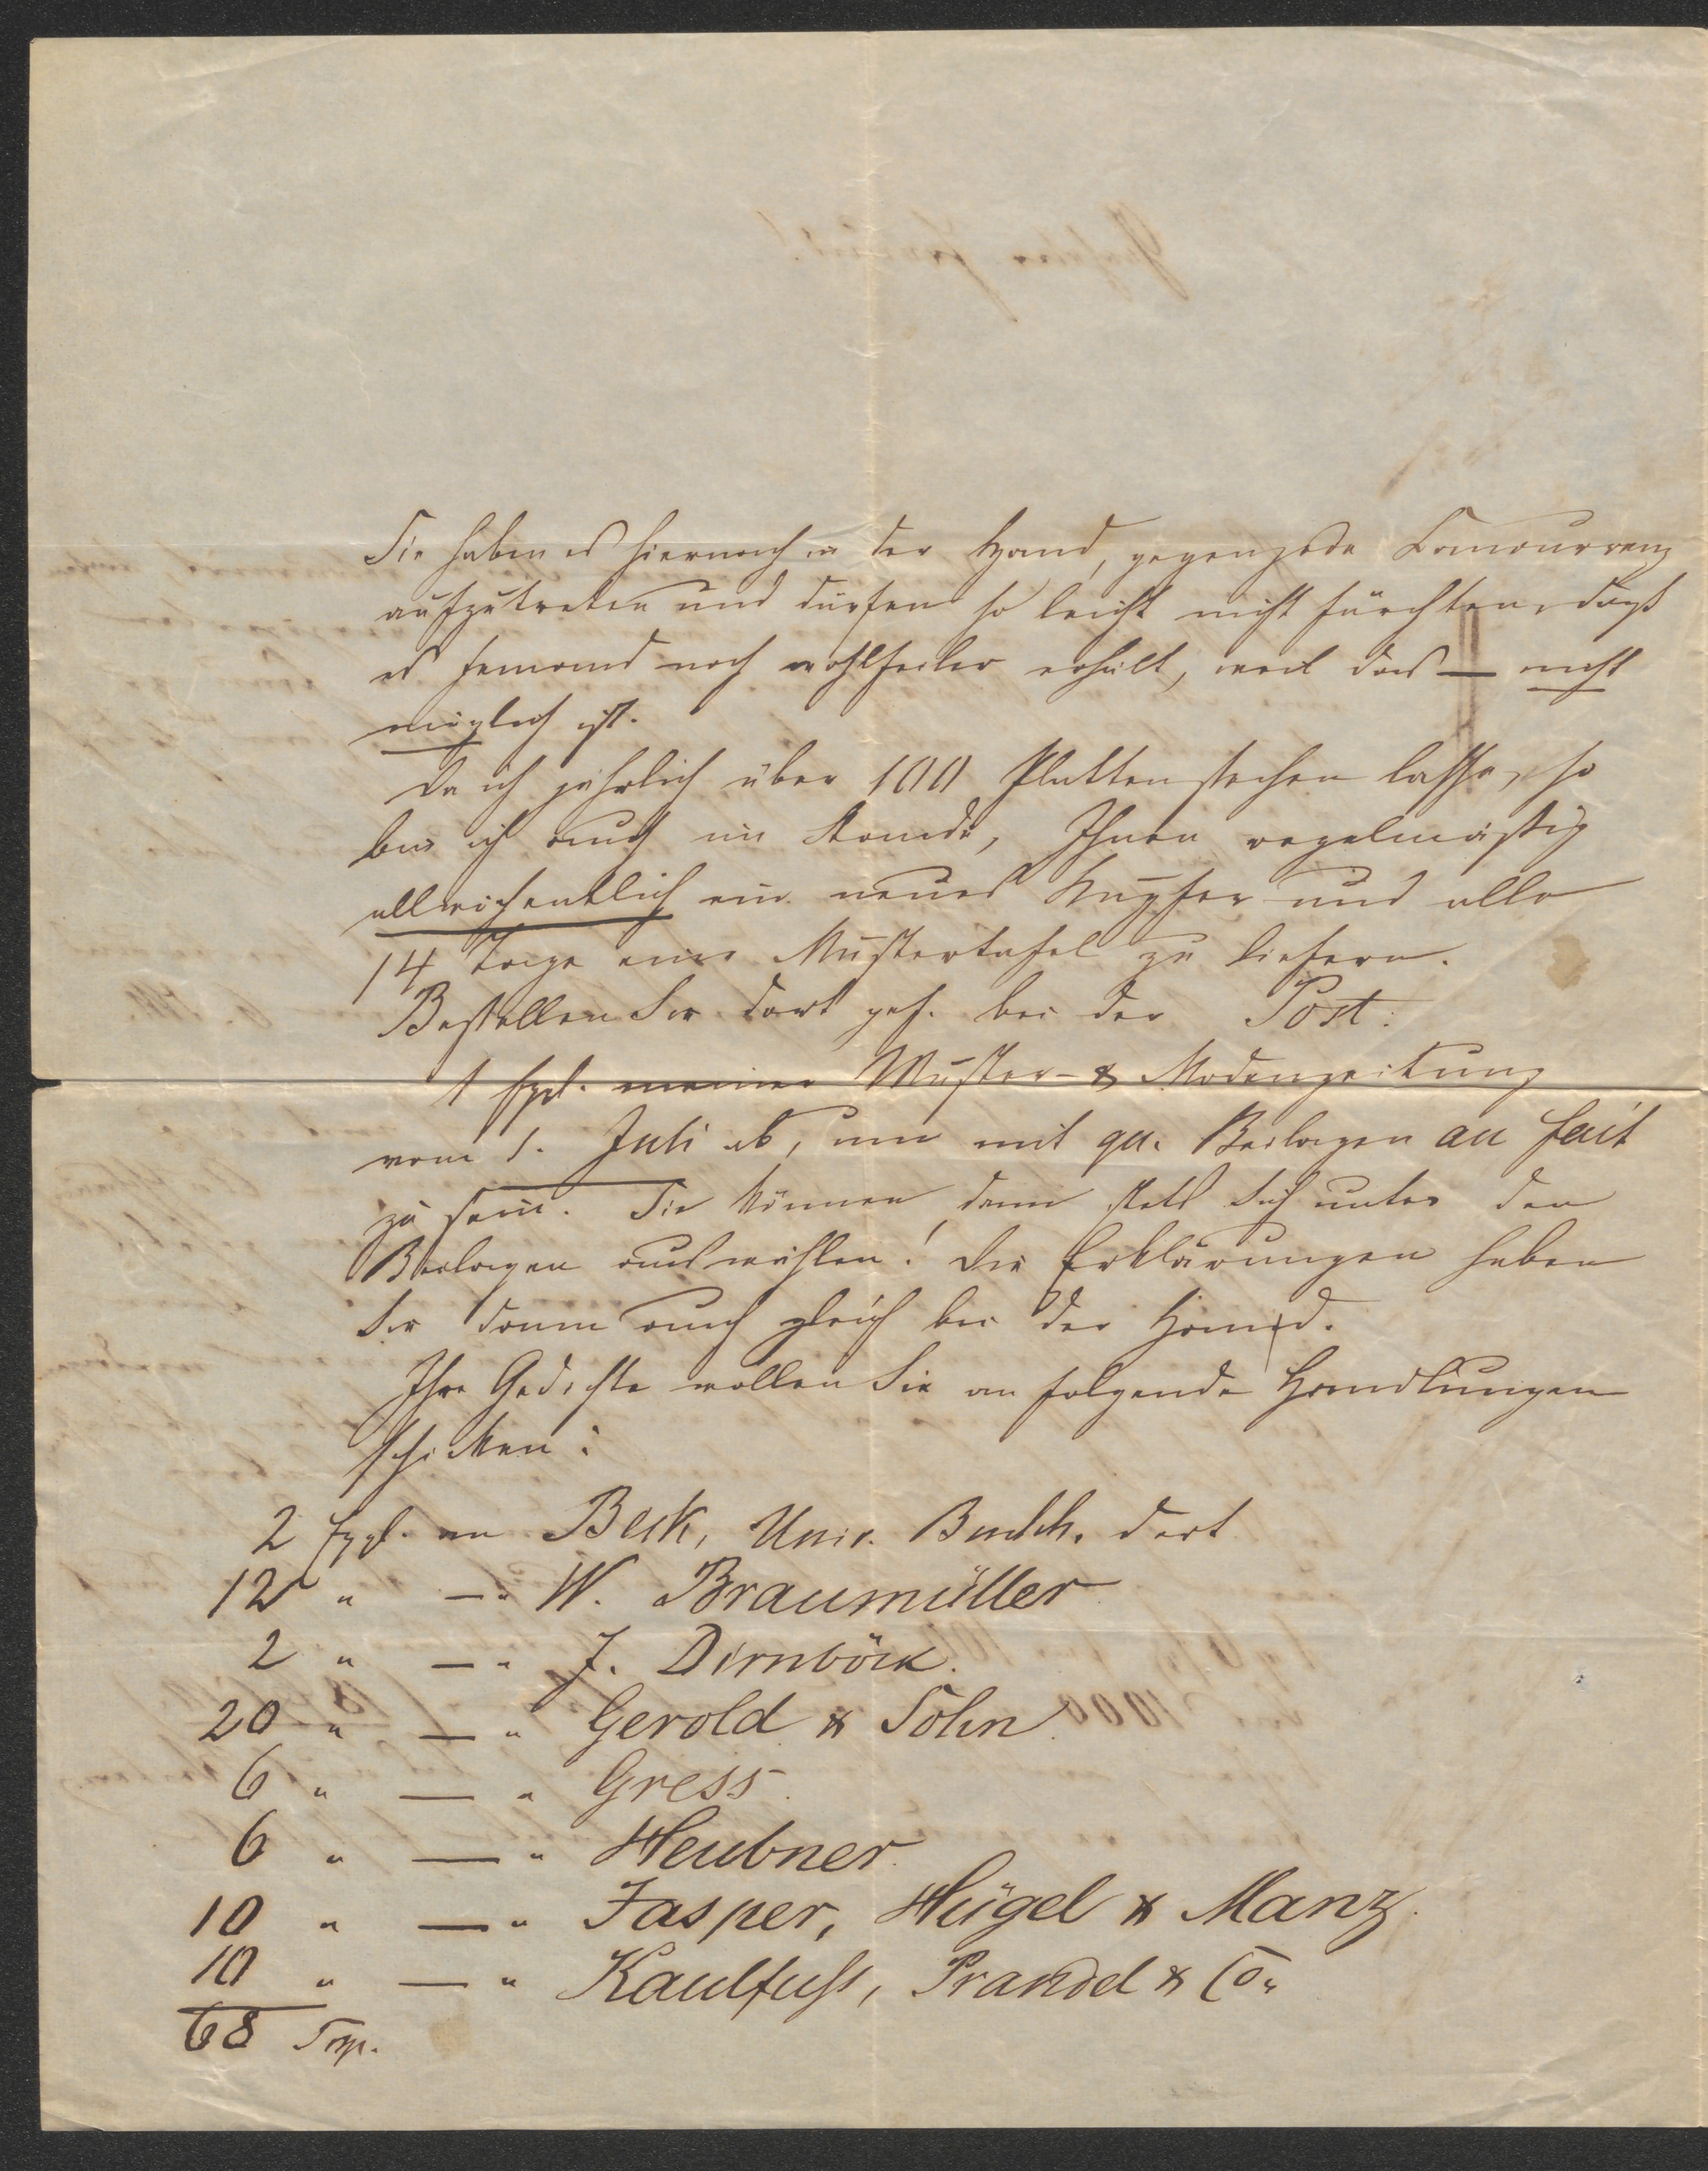 Sie haben es hiernach in der Hand, gegen jede Concurrenz
aufzutreten und dürfen so leicht nicht fürchten, daß
es Jemand noch wohlfeiler erhält, weil das — nicht
möglich ist.
Da ich jährlich über 100 Platten stechen lasse, so
bin ich auch im Stande, Ihnen regelmäßig
allwöchentlich ein neues Kupfer und alle
14 Tage eine Mustertafel zu liefern.
Bestellen Sie dort gef. bei der Post:
1 Expl. meiner Muster- & Modenzeitung
vom 1. Juli ab, um mit qu. Beilagen au fait
zu sein. Sie können dann stets sich unter den
Beilagen auswählen! Die Erklärungen haben
Sie dann auch gleich bei der Hand.
Ihre Gedichte wollen Sie an folgende Handlungen
schicken:
2 Expl. an Beck, Univ. Buchh. dort
12 " — " W. Braumüller
2 " — " J. Dirnböck.
20 " — " Gerold & Sohn.
6 " — " Gress.
6 " — " Heubner.
10 " — " Jasper, Hügel & Manz.
10 " — " Kaulfuß, Prandel & Co.
68